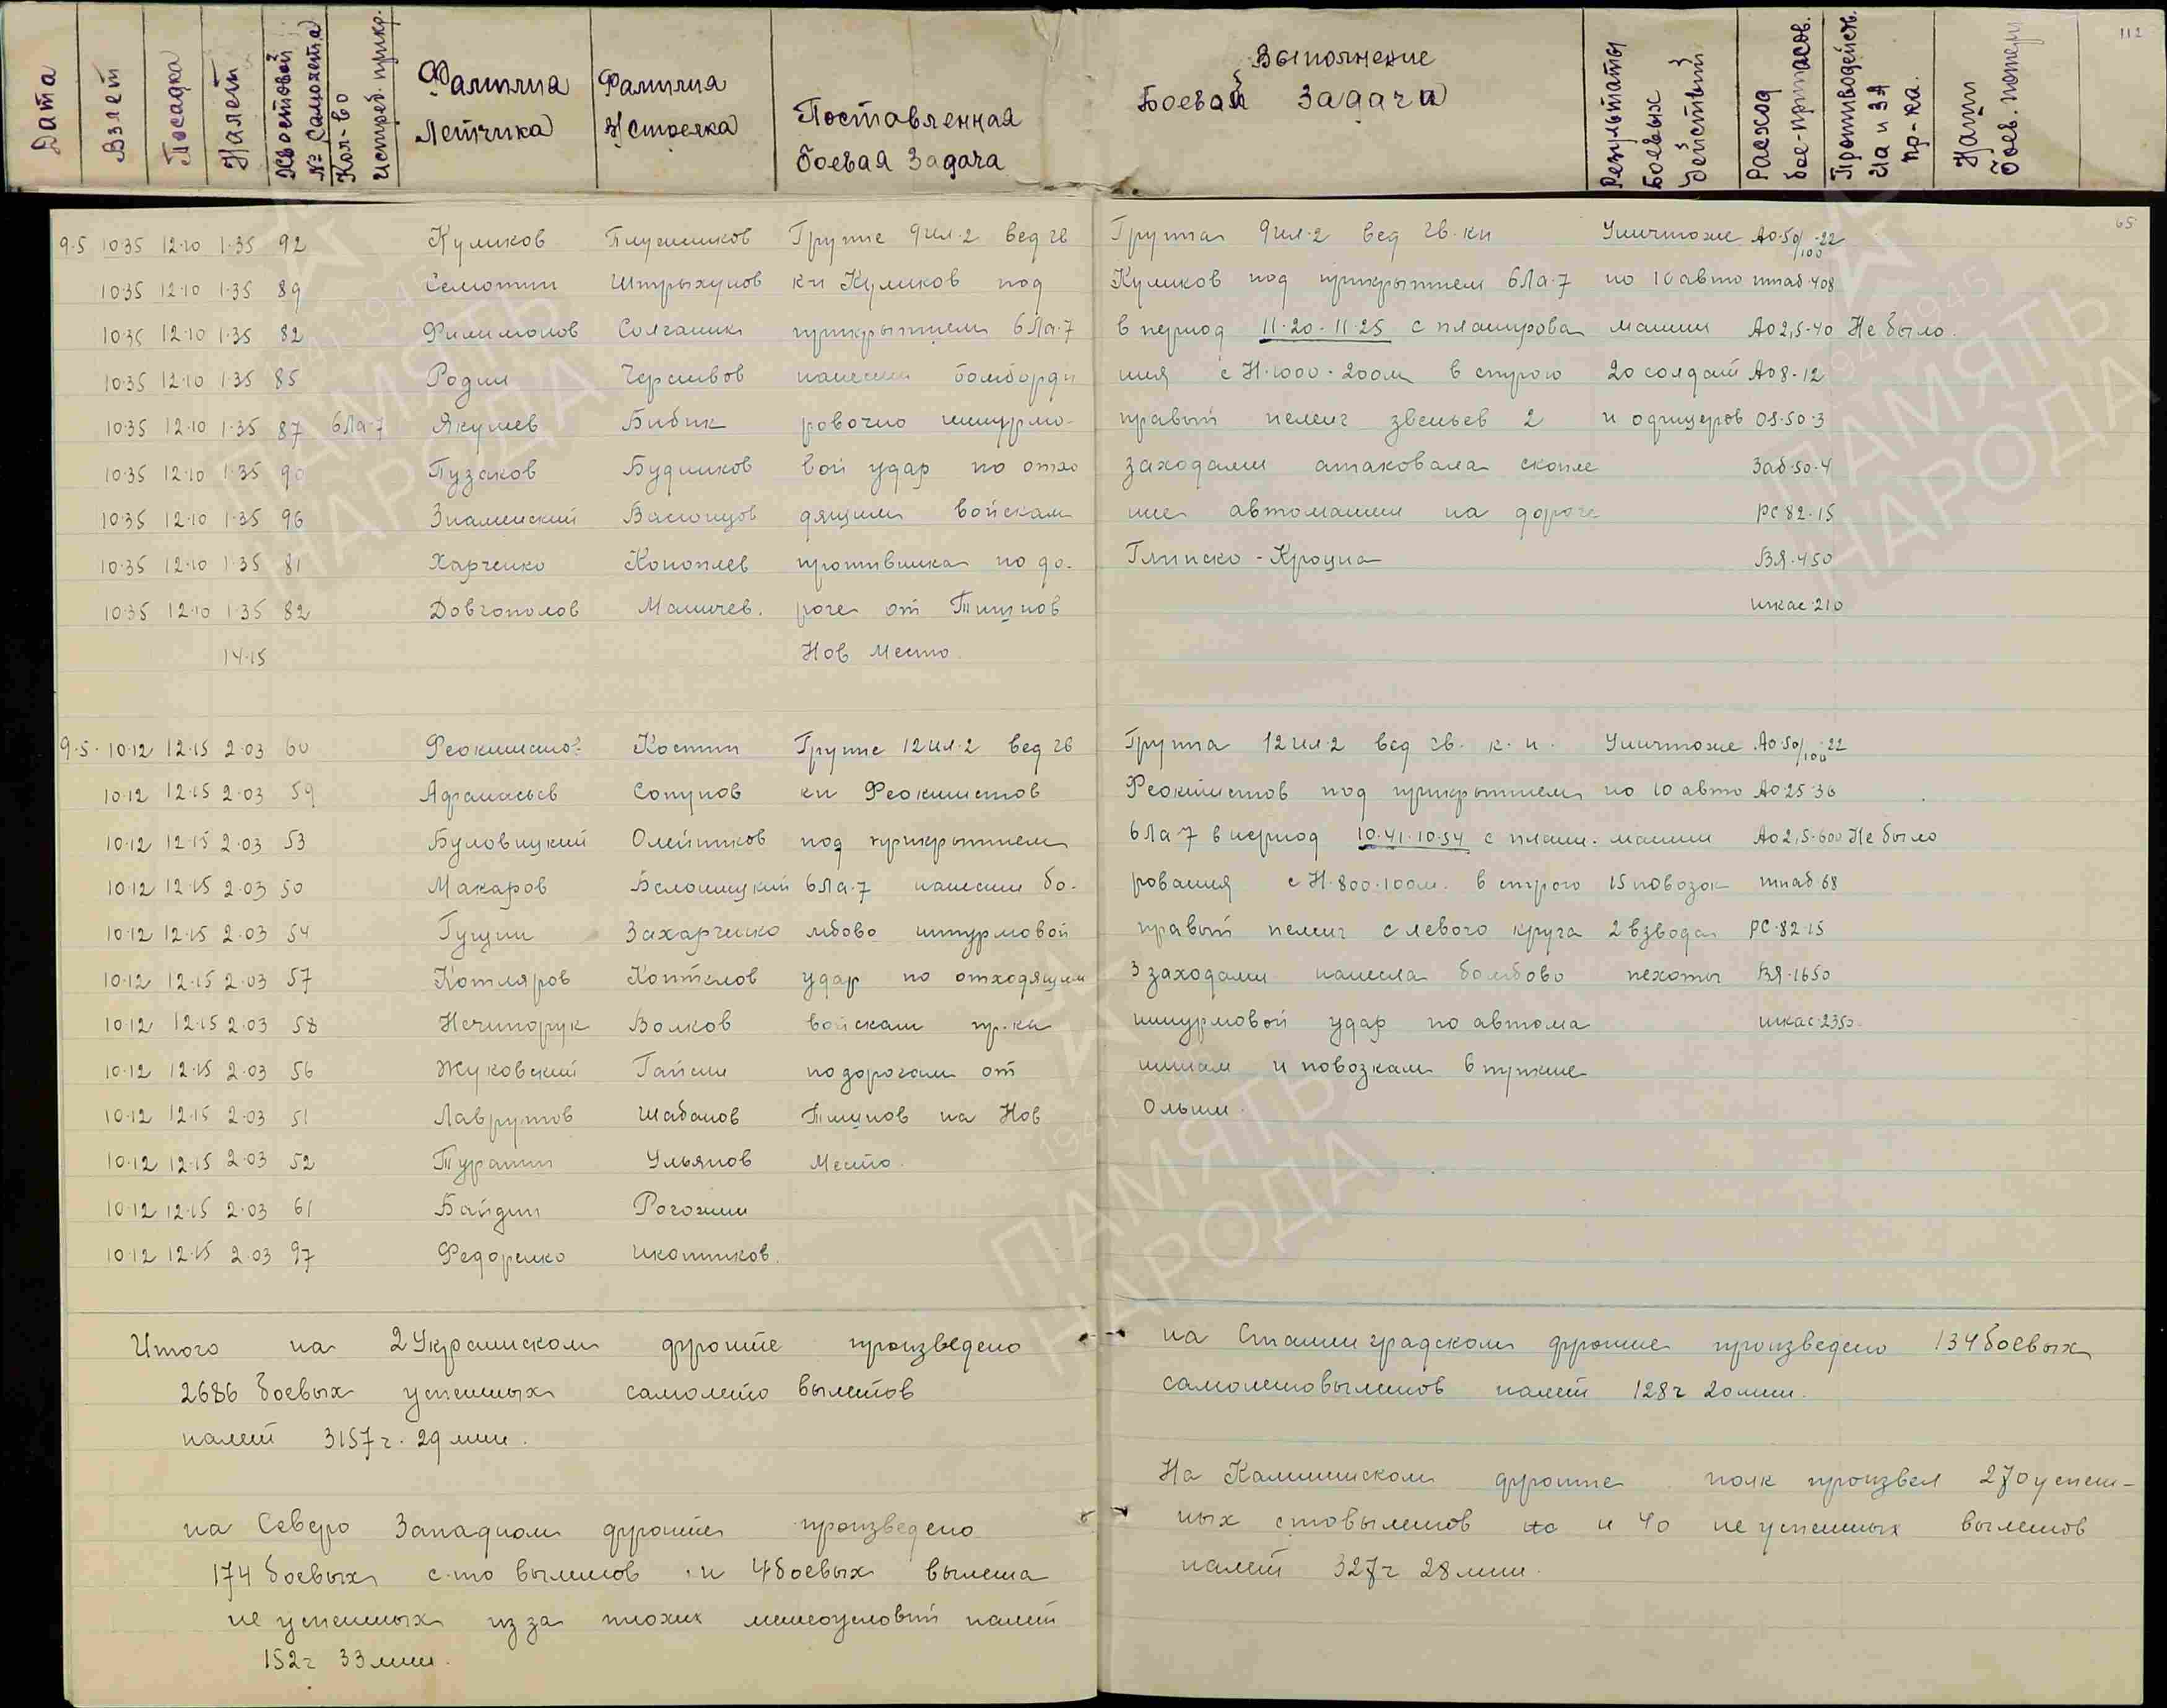 Дата
Взлет
Посадка
Налет
Хвостовой № Самолета
Кол-во истреб. прикр.
Фамилия Летчика
Фамилия Возд. Стрелка
Поставленная боевая задача
Выполнение Боевой задачи
Результаты боевых действий
Расход бое-припасов.
Противодейств. ИА и ЗА пр-ка.
Наши боев. потери
112
65
9·5 10·35 12·10 1·35 92 Куликов Плугиников Группе 9 ил·2 вед гв Группа 9 ил·2 вед гв. кн Уничтоже АО·50/100·22
10·35 12·10 1·35 89 Семотин Штрыхунов к-н Куликов под Куликов под прикрытием 6 Ла·7 но 10 авто птаб·408
10·35 12·10 1·35 82 Филимонов Солганик прикрытием 6 Ла·7 в период 11·20-11·25 с планирова машин АО 2,5-40 Не было.
10·35 12·10 1·35 85 Родин нанести бомборди ния с Н·1000-200м в строю 20 солдат АО 8-12
10·35 12·10 1·35 87 6 Ла·7 Якушев Бибик ровочно штурмо- правый пеленг звеньев 2 и офицеров ОЗ·50·3
10·35 12·10 1·35 90 Пузаков Будников вой удар по отхо заходами атаковала скопле Заб·50·4
10·35 12·10 1·35 96 Знаменский дящим войскам ние автомашин на дороге РС 82·15
10·35 12·10 1·35 81 Харченко Коноплев противника по до- Глинско - Кроуна ВЯ·450
10·35 12·10 1·35 82 Довгополов Маничев. роге от Тишнов шкас·210
14·15 Нов Место.
9·5· 10·12 12·15 2·03 60 Феоктистов Костин Группе 12 ил·2 вед гв Группа 12 ил·2 вед гв. к. н. Уничтоже АО·50/100·22
10·12 12·15 2·03 59 Афанасьев Сопунов кн Феоктистов Феоктистов под прикрытием но 10 авто АО 25·36
10·12 12·15 2·03 53 Буловицкий Олейников под прикрытием 6 Ла·7 в период 10·41-10·54 с плани- машин АО 2,5-600 Не было
10·12 12·15 2·03 50 Макаров Белошицкий 6 Ла·7 нанести бо- рования с Н·800-100м. в строю 15 повозок птаб·68
10·12 12·15 2·03 54 Гущин Захарченко мбово штурмовой правый пеленг с левого круга 2 взвода РС·82·15
10·12 12·15 2·03 57 Котляров Коптелов удар по отходящим 3 заходами нанесла бомбово пехоты ВЯ·1650
10·12 12·15 2·03 58 Нечипорук Волков войскам пр-ка штурмовой удар по автома шкас·2350
10·12 12·15 2·03 56 Жуковский Гайсин по дорогам от шинам и повозкам в пункте
10·12 12·15 2·03 51 Лаврутов Шабанов Тишнов на Нов Ольши.
10·12 12·15 2·03 52 Турапин Ульянов Место.
10·12 12·15 2·03 61 Байдин Рогожин
10·12 12·15 2·03 97 Федоренко Икотников.
Итого на 2 Украинском фронте произведено
2686 боевых успешных самолето вылетов
налет 3157 ч. 29 мин.
на Северо Западном фронте произведено
174 боевых с-то вылетов и 4 боевых вылета
не успешных из за плохих метеоусловий налет
152 ч 33 мин.
на Сталинградском фронте произведено 134 боевых
самолетовылетов налет 128 ч 20 мин.
На Калининском фронте полк произвел 270 успеш-
ных с-товылетов и 40 не успешных вылетов
налет 327 ч 28 мин.
ПАМЯТЬ НАРОДА